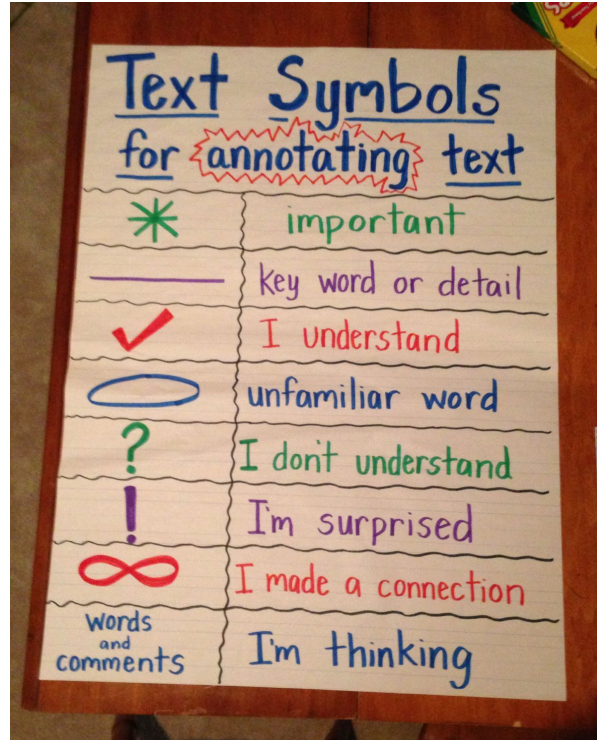 Text Symbols
for annotating text
important
key word or detail
I understand
unfamiliar word
? I don't understand
! I'm surprised
I made a connection
words
and
comments
I'm thinking